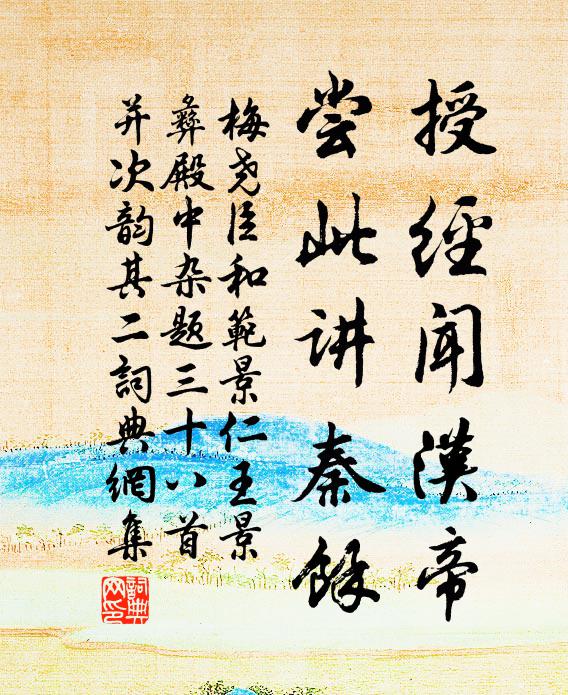 授經闻漢帝
尝此讲秦餘
梅尧臣和範景仁王景
彝殿中杂题三十八首
并次韵其二詞典網集
詞典
网印